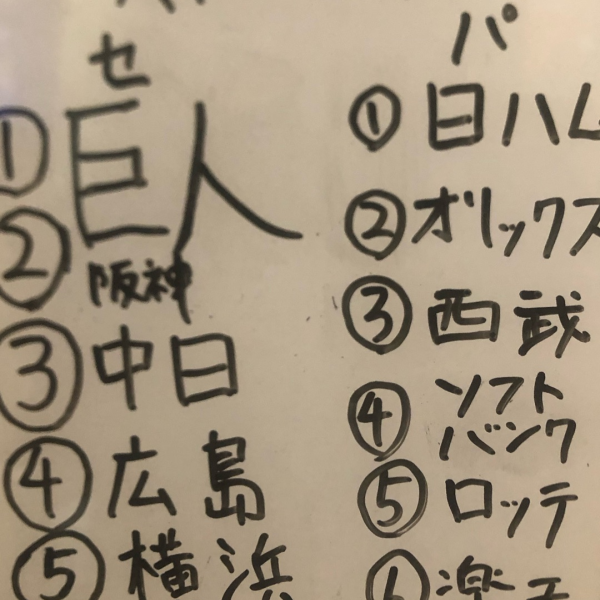 セ
①巨人
②阪神
③中日
④広島
⑤横浜
パ
①日ハム
②オリックス
③西武
④ソフト
バンク
⑤ロッテ
⑥楽天